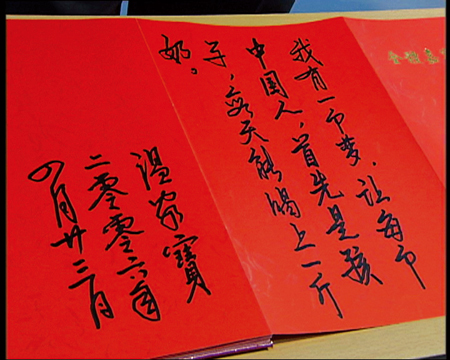 我有一个梦，让每个
中国人，首先是孩
子，每天能喝上一斤
奶。
温家宝
二零零六年
四月廿三日